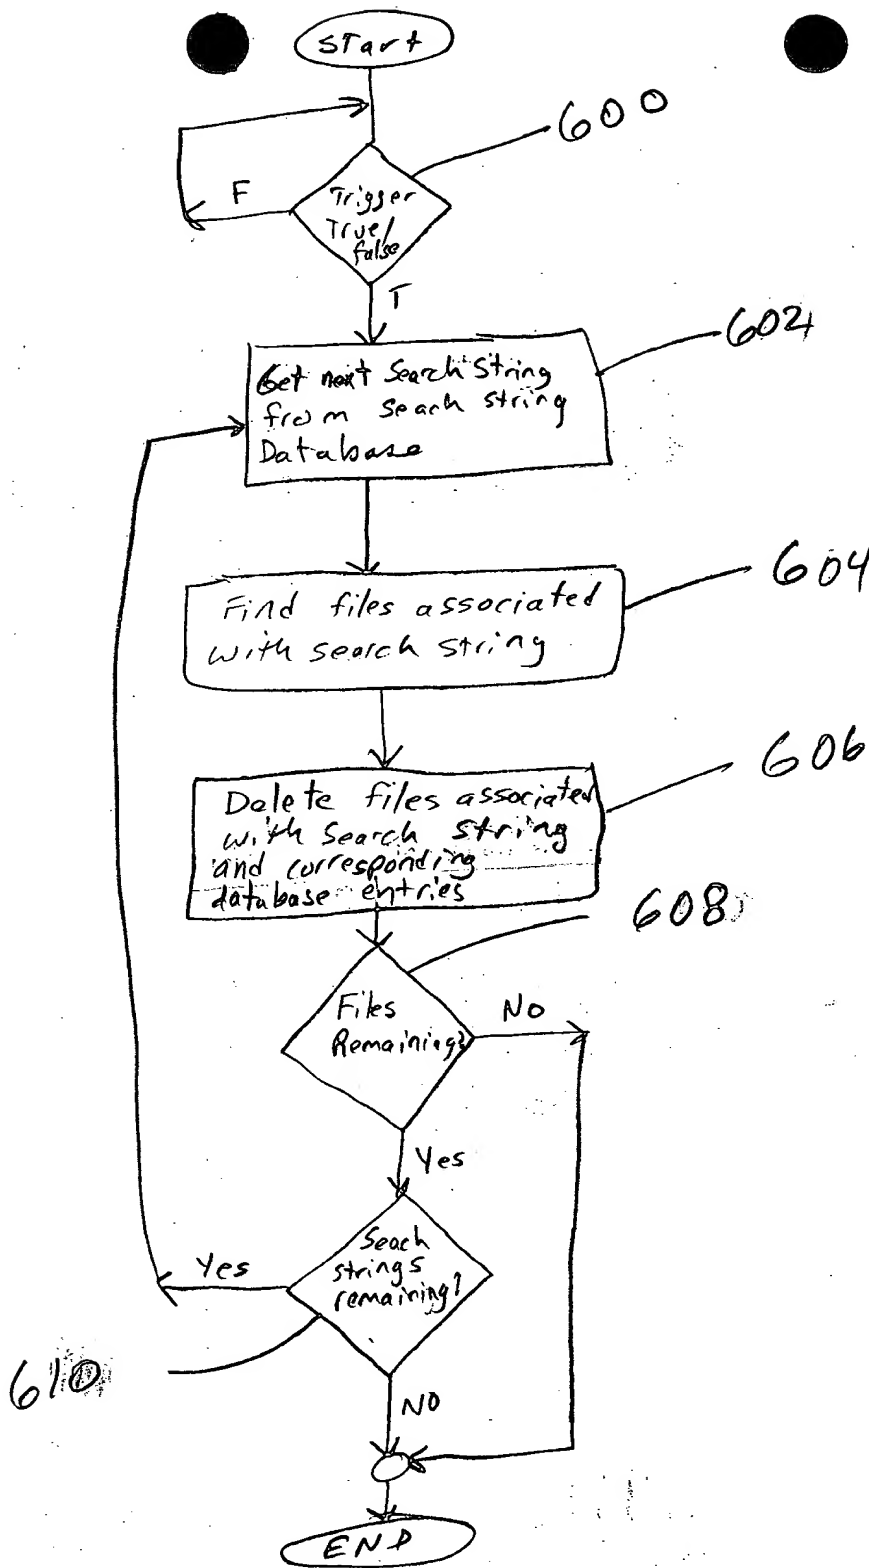 START
600
F
Trigger
True/
false
T
602
Get next Search String
from Seach string
Database
604
Find files associated
with search string
606
Delete files associated
with Search string
and corresponding
database entries
608
Files
Remaining?
No
Yes
Seach
strings
remaining?
Yes
610
NO
END